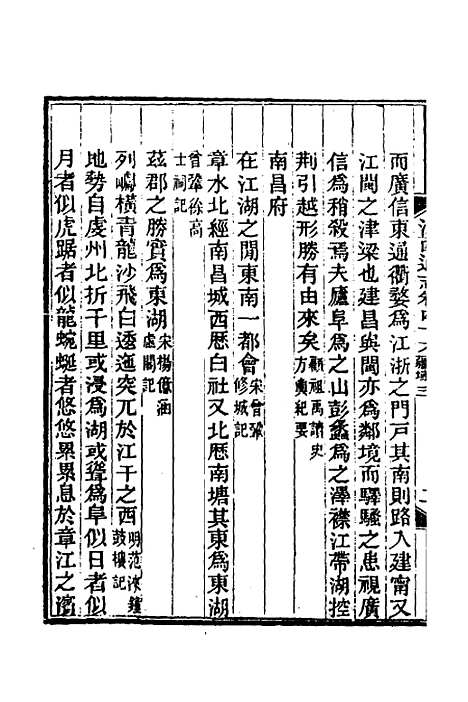 而廣信東通衢婺爲江浙之門戸其南則路入建甯又
江閩之津梁也建昌與閩亦爲鄰境而驛騷之患視廣
信爲稍殺焉夫廬阜爲之山彭蠡爲之澤襟江帶湖控
荆引越形勝有由來矣顧祖禹讀史方輿紀要
南昌府
在江湖之閒東南一都會宋曾鞏修城記
章水北經南昌城西歴白社又北歴南塘其東爲東湖
曾鞏徐高士祠記
茲郡之勝實爲東湖宋楊傑涵虛閣記
列嶂橫青龍沙飛白逶迤突兀於江干之西明范淶鐘鼓樓記
地勢自虔州北折千里或浸爲湖或聳爲阜似日者似
月者似虎踞者似龍蜿蜒者悠悠累累息於章江之濱